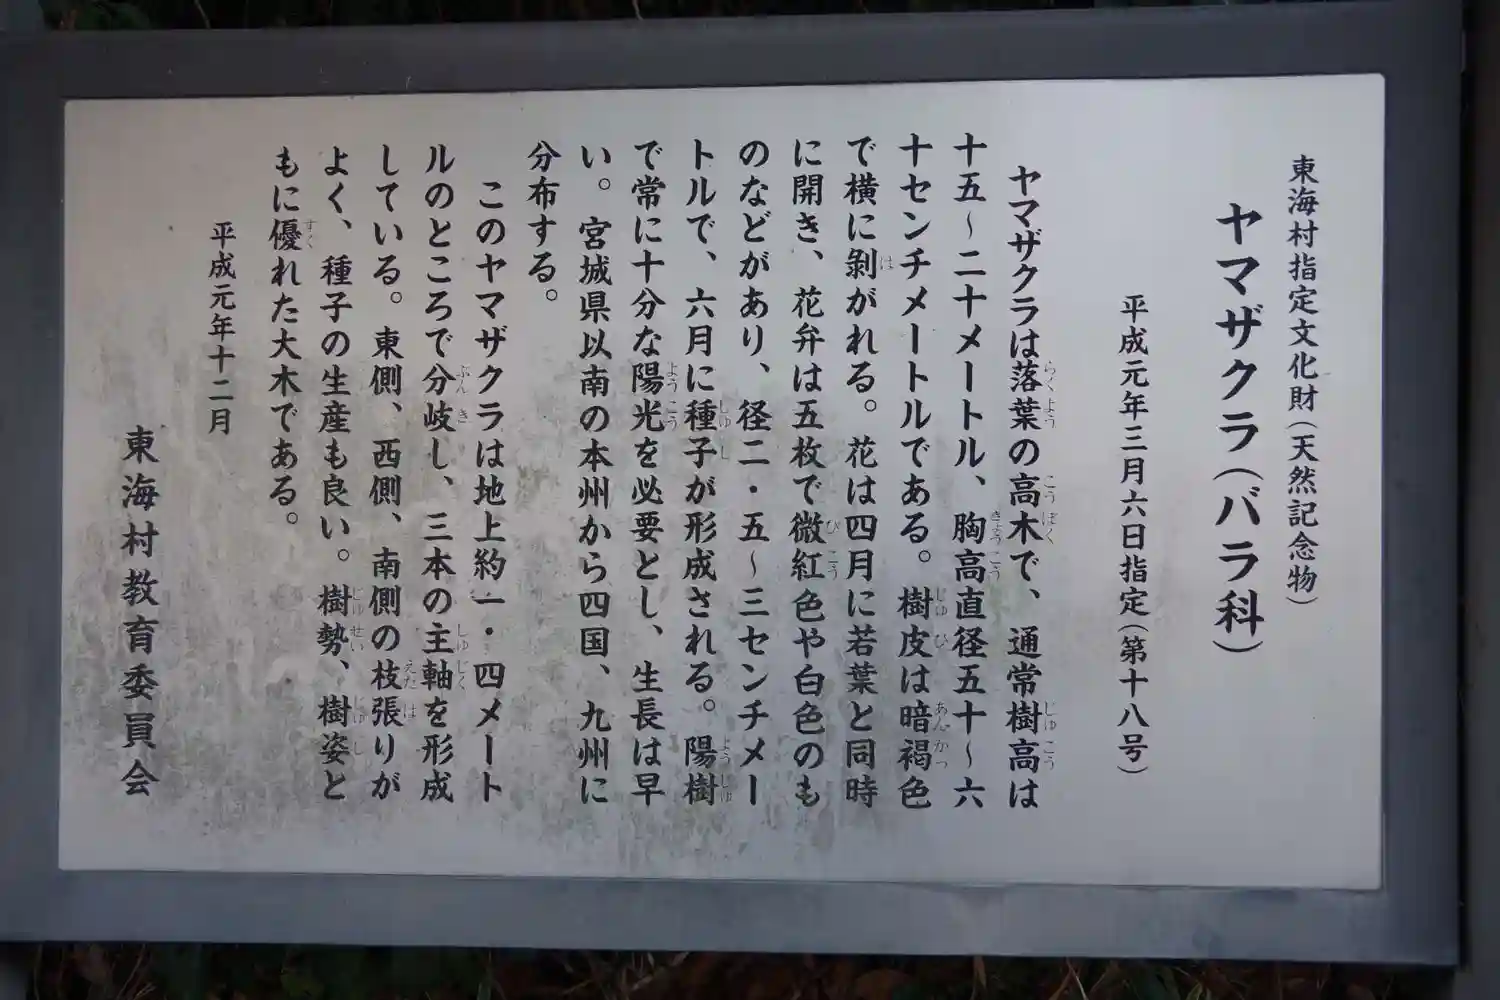 東海村指定文化財(天然記念物)
ヤマザクラ(バラ科)
平成元年三月六日指定(第十八号)
ヤマザクラは落葉の高木で、通常樹高は
十五～二十メートル、胸高直径五十～六
十センチメートルである。樹皮は暗褐色
で横に剝がれる。花は四月に若葉と同時
に開き、花弁は五枚で微紅色や白色のも
のなどがあり、径二・五～三センチメー
トルで、六月に種子が形成される。陽樹
で常に十分な陽光を必要とし、生長は早
い。宮城県以南の本州から四国、九州に
分布する。
このヤマザクラは地上約一・四メート
ルのところで分岐し、三本の主軸を形成
している。東側、西側、南側の枝張りが
よく、種子の生産も良い。樹勢、樹姿と
もに優れた大木である。
平成元年十二月
東海村教育委員会